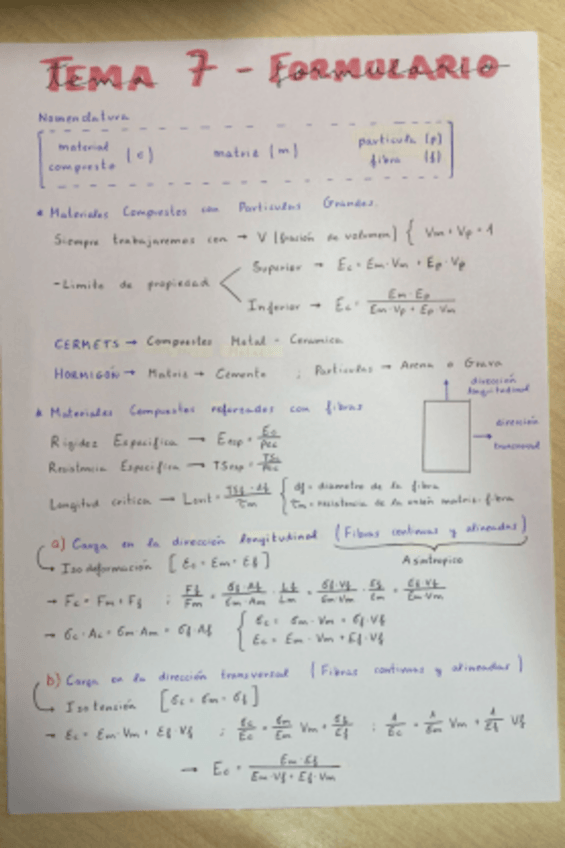 TEMA 7 - FORMULARIO
Nomenclatura
material compuesto (c)
matriz (m)
partícula (p)
fibra (f)
* Materiales Compuestos con Partículas Grandes.
Siempre trabajaremos con → V (fracción de volumen) { Vm + Vp = 1
- Límite de propiedad
Superior → Ec = Em · Vm + Ep · Vp
Inferior → Ec = Em · Ep / Em · Vp + Ep Vm
CERMETS → Compuestos Metal - Cerámica
HORMIGÓN → Matriz → Cemento ; Partículas → Arena o Grava
dirección longitudinal
dirección transversal
* Materiales Compuestos reforzados con fibras
Rigidez Específica → Eesp =
Resistencia Específica → TSesp =
Longitud crítica → Lcrit = TSf · df / τm { df = diametro de la fibra
τm = resistencia de la unión matriz-fibra
a) Carga en la dirección longitudinal (Fibras continuas y alineadas)
Asotropico
Isodeformación [Ɛc = Ɛm = Ɛf]
→ Fc = Fm + Ff ; Ff/Fm = σf · Af / σm · Am · Lf/Lm = σf · Vf / σm · Vm · = Ef Vf / Em Vm
→ σc · Ac = σm · Am + σf · Af { σc = σm · Vm + σf · Vf
Ec = Em · Vm + Ef · Vf
b) Carga en la dirección transversal (Fibras continuas y alineadas)
Isotensión [σc = σm = σf]
→ Ɛc = Ɛm · Vm + Ɛf · Vf ; σc/Ec = σm/Em Vm + σf/Ef ; 1/Ec = Vm + 1/Ef Vf
→ Ec = Em · Ef / Em · Vf + Ef · Vm